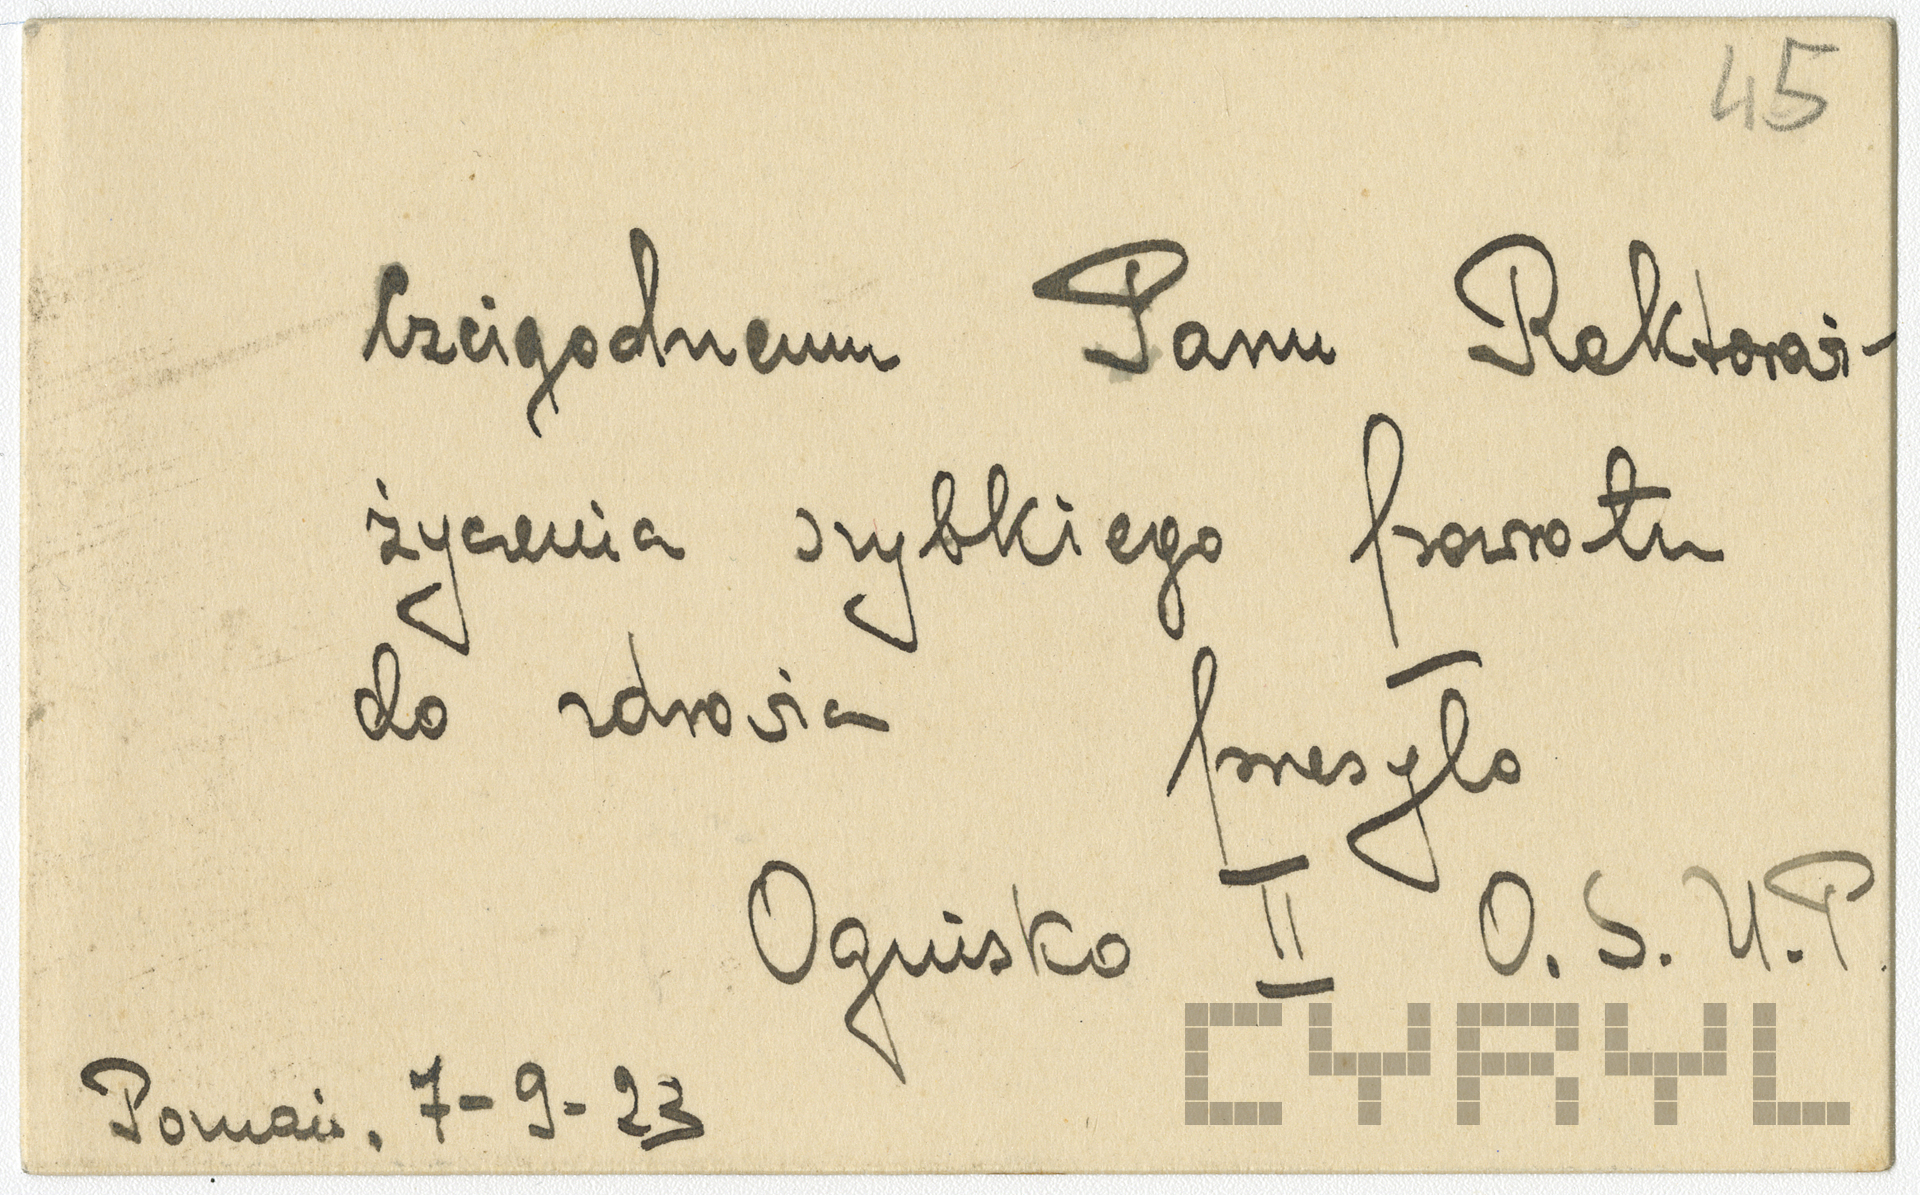 45
Czcigodnemu Panu Rektorowi-
życzenia szybkiego powrotu
do zdrowia przesyła
Ognisko II O. S. U. P.
Poznań, 7-9-23
CYRYL